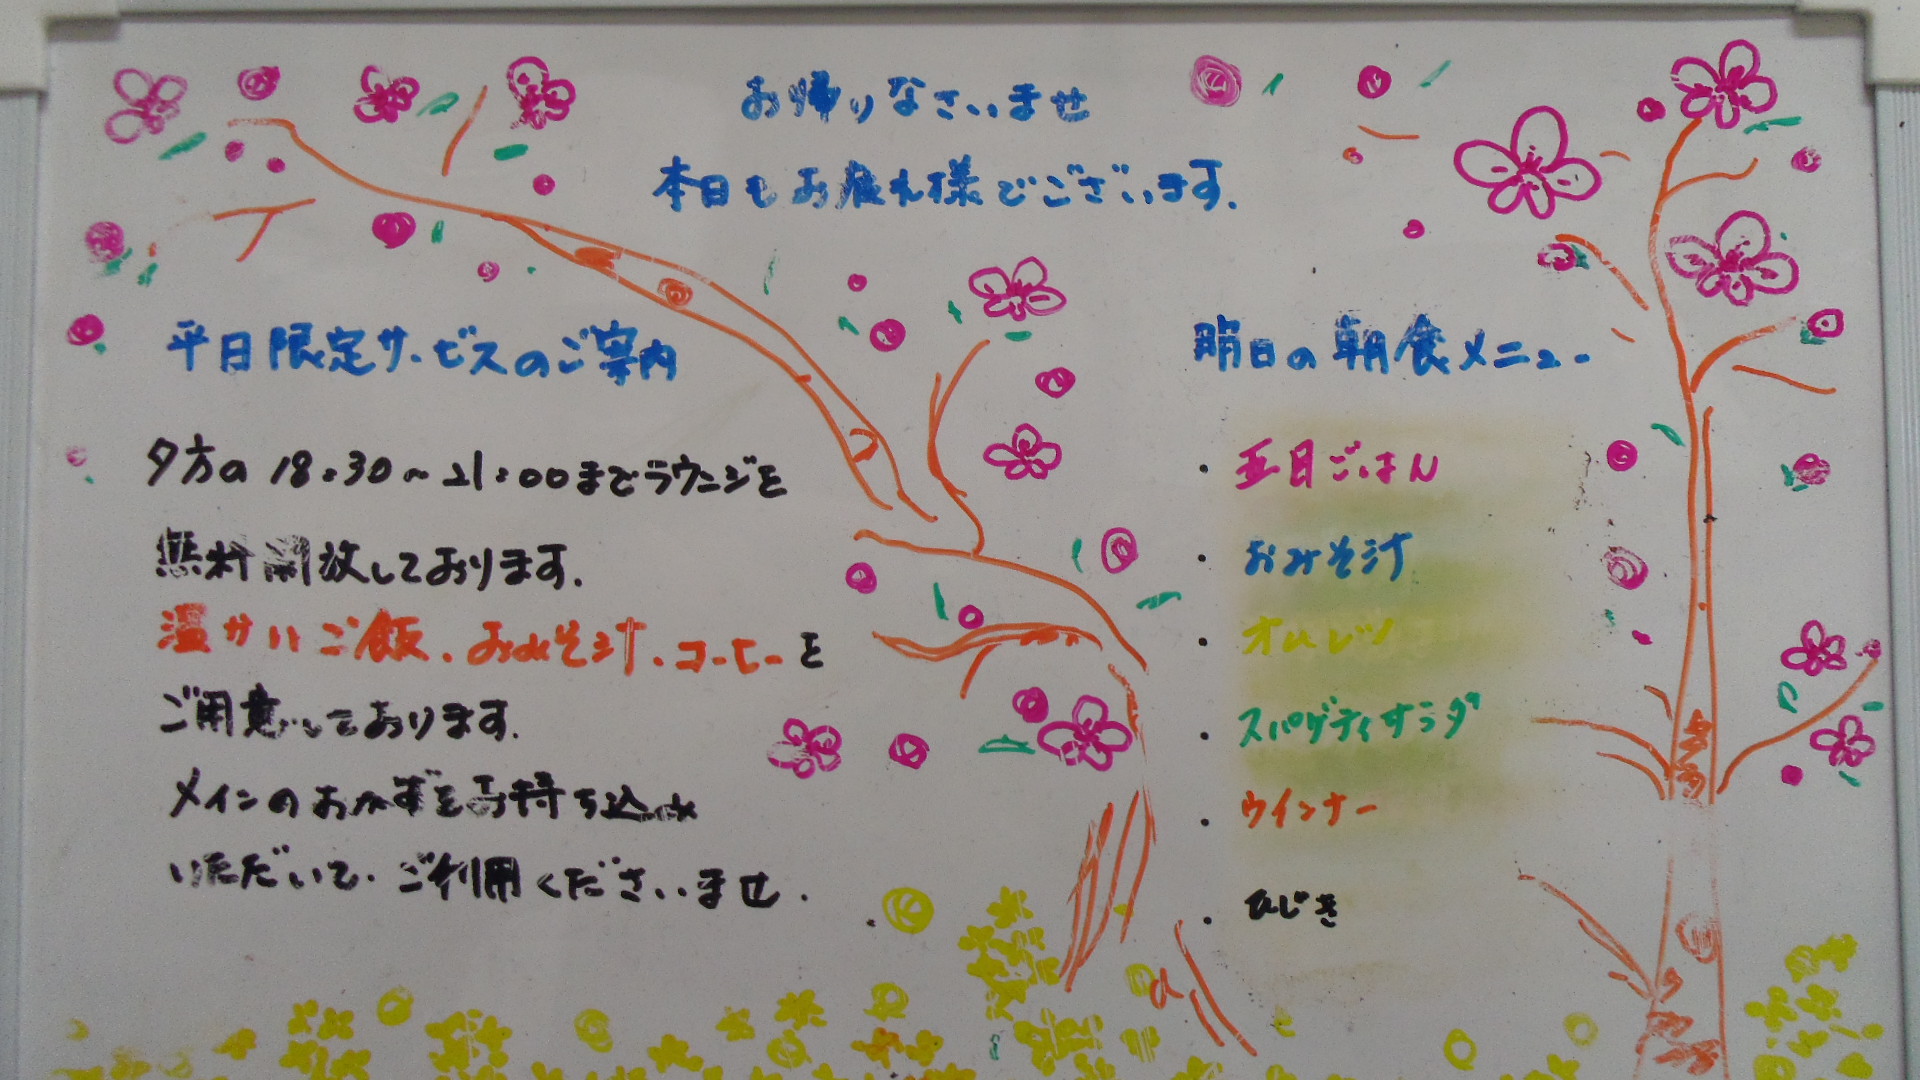 お帰りなさいませ
本日もお疲れ様でございます.
平日限定サービスのご案内
夕方の 18:30～21:00までラウンジを
無料開放しております.
温かいご飯、おみそ汁、コーヒーを
ご用意しております.
メインのおかずをお持ち込み
いただいて、ご利用くださいませ.
明日の朝食メニュー
・五目ごはん
・おみそ汁
・オムレツ
・スパゲティサラダ
・ウインナー
・ひじき